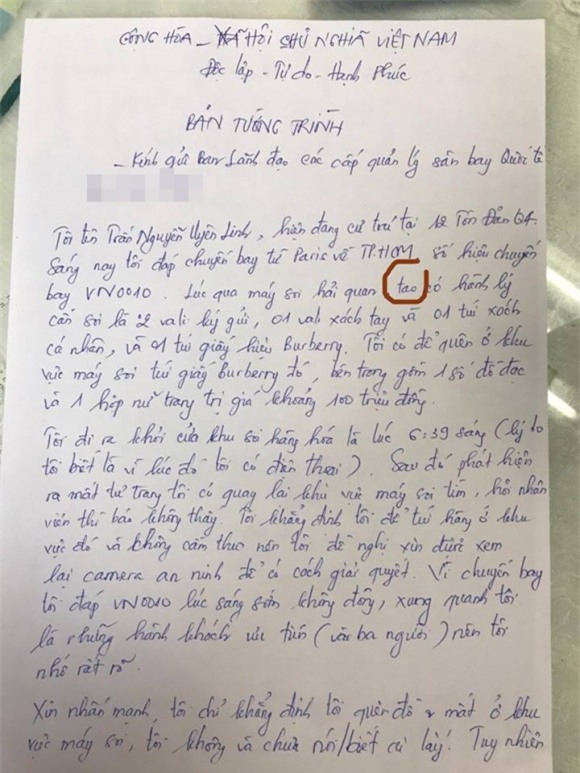 CỘNG HÒA _ XÃ HỘI CHỦ NGHĨA VIỆT NAM
Độc lập - Tự do - Hạnh Phúc
BẢN TƯỜNG TRÌNH
_ Kính gửi Ban Lãnh đạo các cấp quản lý sân bay Quốc tế
Tôi tên Trần Nguyễn Uyên Linh, hiện đang cư trú tại 12 Tôn Đản Q4.
Sáng nay tôi đáp chuyến bay từ Paris về TP.HCM số hiệu chuyến
bay VN0010. Lúc qua máy soi hải quan tao có hành lý
cần soi là 2 vali ký gửi, 01 vali xách tay và 01 túi xách
cá nhân, và 01 túi giấy hiệu Burberry. Tôi có để quên ở khu
vực máy soi túi giấy Burberry đó, bên trong gồm 1 số đồ đạc
và 1 hộp nữ trang trị giá khoảng 100 triệu đồng.
Tôi đi ra khỏi cửa khu soi hàng hóa là lúc 6:39 sáng (lý do
tôi biết là vì lúc đó tôi có điện thoại). Sau đó phát hiện
ra mất tư trang tôi có quay lại khu vực máy soi tìm, hỏi nhân
viên thì báo không thấy. Tôi khẳng định tôi để túi hàng ở khu
vực đó và không cầm theo nên tôi đề nghị xin được xem
lại camera an ninh để có cách giải quyết. Vì chuyến bay
tôi đáp VN0010 lúc sáng sớm không đông, xung quanh tôi
là những hành khách ưu tiên (vài ba người) nên tôi
nhớ rất rõ.
Xin nhấn mạnh, tôi chỉ khẳng định tôi quên đồ & mất ở khu
vực máy soi, tôi không và chưa nói/biết ai lấy! Tuy nhiên